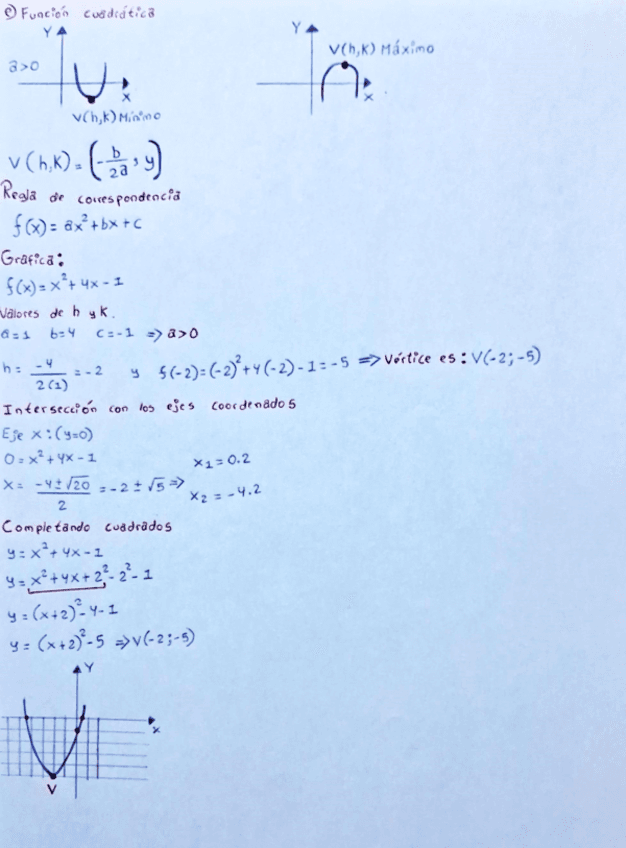 e) Función cuadrática
Y
Y
V(h,k) Máximo
a>0
X
X
V(h,k) Mínimo
V(h,k) = (-b/2a, y)
Regla de correspondencia
f(x) = ax² + bx + c
Gráfica:
f(x) = x² + 4x - 1
Valores de h y k.
a=1 b=4 c=-1 ⇒ a>0
h = -4/2(1) = -2 y f(-2) = (-2)² + 4(-2) - 1 = -5 ⇒ Vértice es: V(-2;-5)
Intersección con los ejes coordenados
Eje x: (y=0)
0 = x² + 4x - 1
x₁ = 0.2
x = -4±√20/2 = -2 ± √5 ⇒
x₂ = -4.2
Completando cuadrados
y = x² + 4x - 1
y = x² + 4x + 2² - 2² - 1
y = (x+2)² - 4 - 1
y = (x+2)² - 5 ⇒ V(-2;-5)
Y
x
V